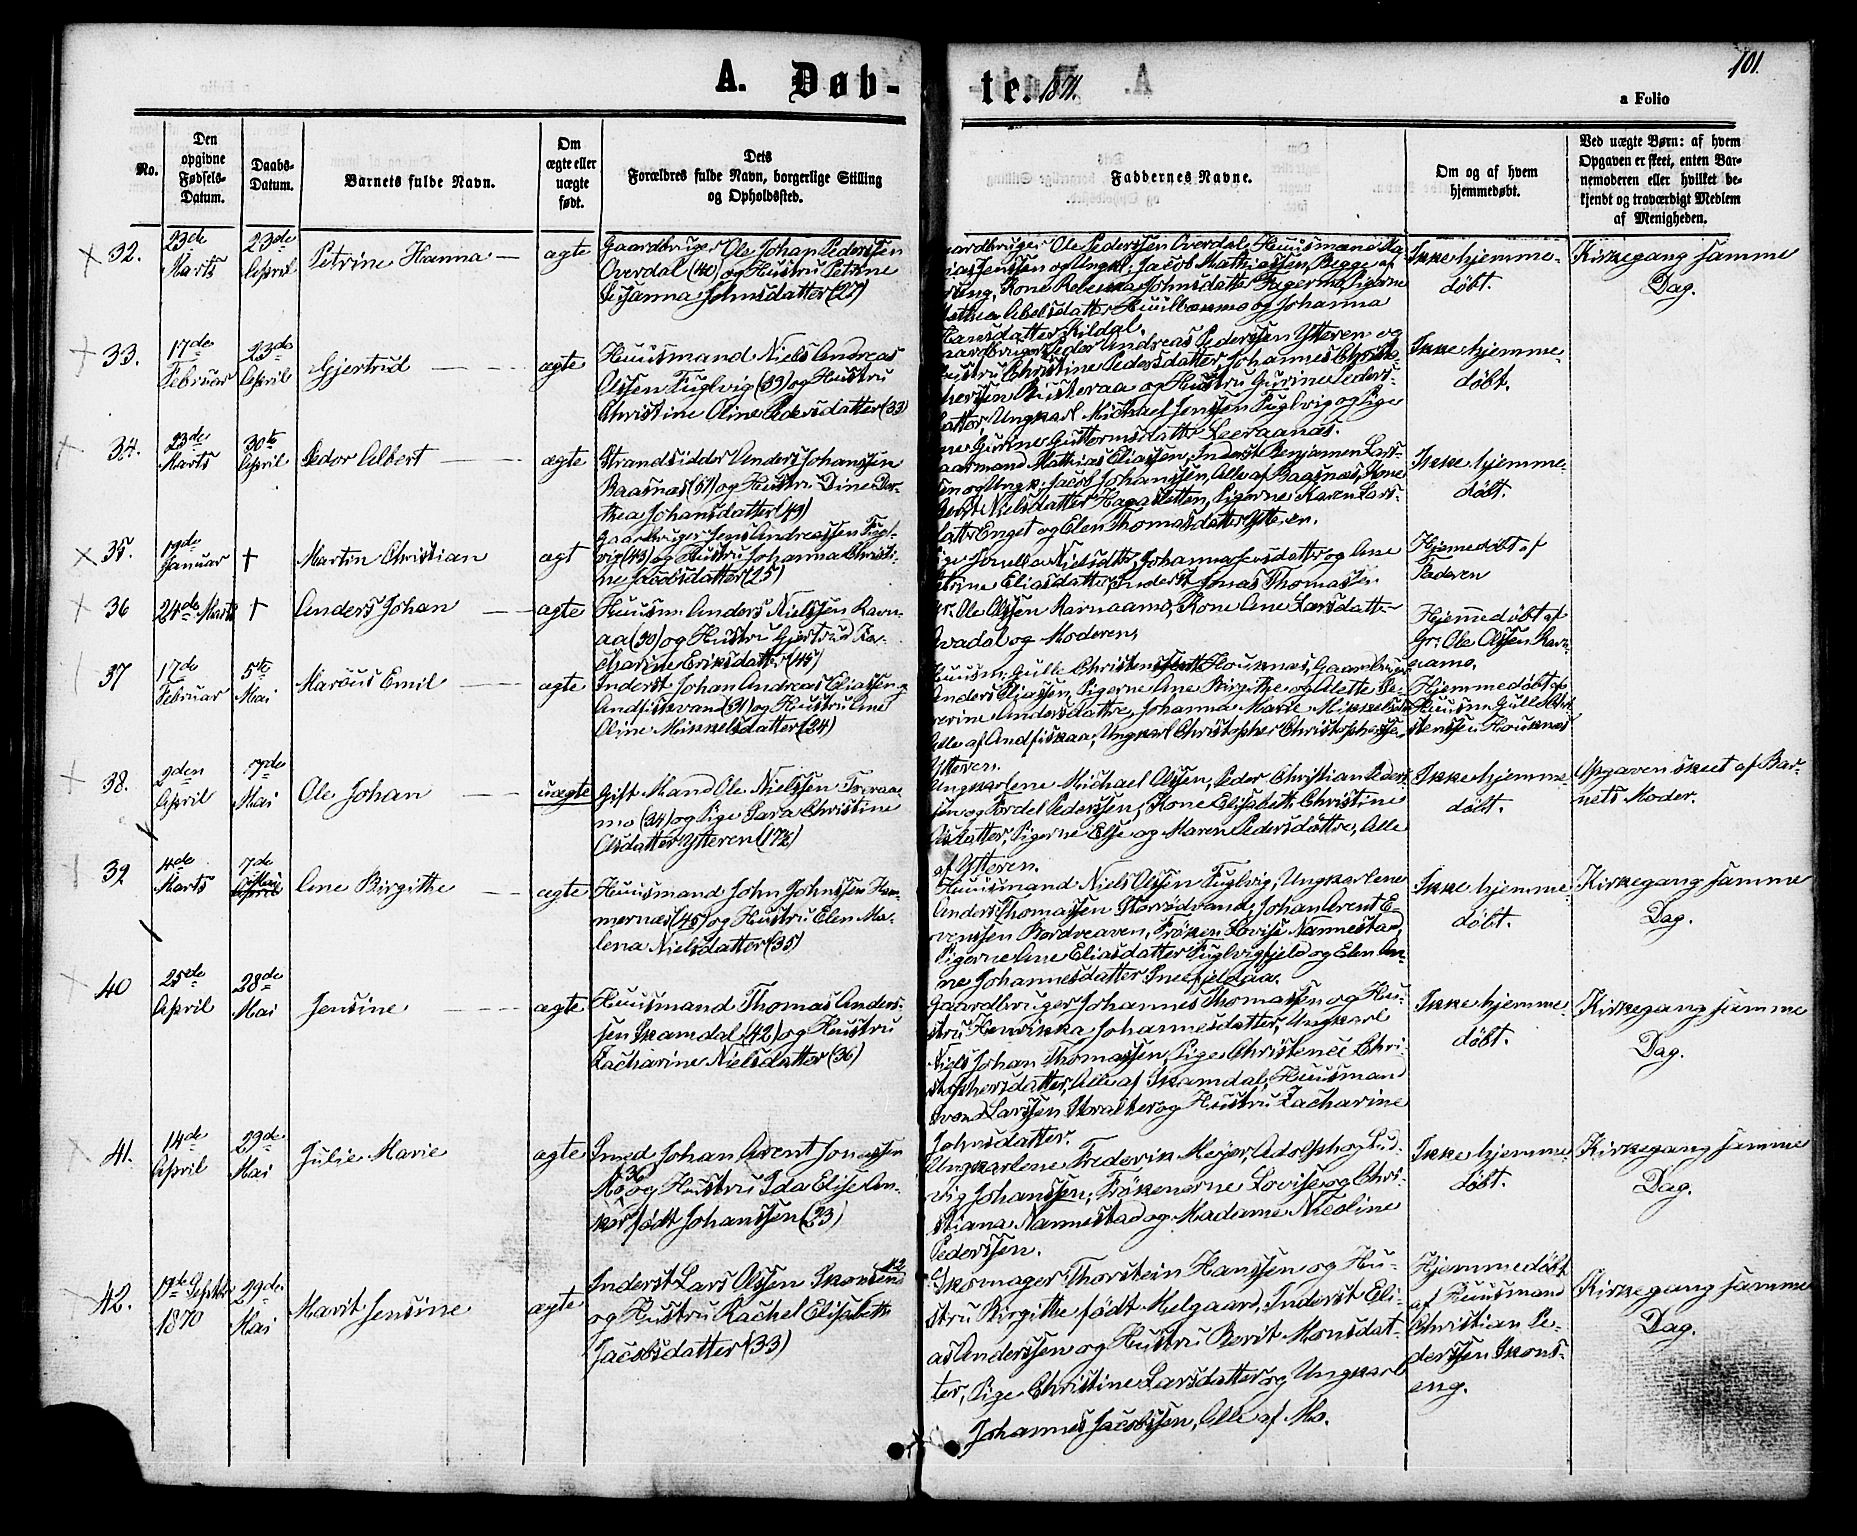 101.
A. Døb-te. 1871.
a Folio
No.
Den opgivne Fødsels-Datum.
Daabs-Datum.
Barnets fulde Navn.
Om ægte eller uægte født.
Dets Forældres fulde Navn, borgerlige Stilling og Opholdssted.
Faddernes Navne.
Om og af hvem hjemmedøbt.
Ved uægte Børn: af hvem Opgaven er skeet, enten Barnemoderen eller hvilket bekjendt og troværdigt Medlem af Menigheden.
32.
23de Marts
23de April
Petrine Hanna
ægte
Gaardbruger Ole Johan Pederssen
Overdal (40) og Hustru Petrine
Susanna Johnsdatter (27)
Ole Pederssen Overdal, Huusmand
og Ungk: Jacob Mathiassen, Begge af
Kone Rebecka Johnsdatter Fagermo, Pigerne
Abelsdatter og Johanna
Hansdatter Kildal.
Ikke hjemme-
døbt.
Kirkegang samme
Dag.
33.
17de Februar
23de April
Gjertrud
ægte
Huusmand Niels Andreas
Olssen Fuglvig (39) og Hustru
Christine Oline Pedersdatter (33)
Peder Andreas Pederssen Ytteren og
Christine Pedersdatter, Johannes
og Hustru Gurine Peders-
Ungkarl Michael Jenssen Fuglvig og Pige
Gurine Guttormsdatter
Ikke hjemme-
døbt.
34.
23de Marts
30te April
Pedor Albert
ægte
Strandsidder Anders Johanssen
Baasnæs (51) og Hustru Dine Dor-
thea Johansdatter (43)
Mathias Eliassen, Inderst Benjamen Lars-
sen og Ungk: Jacob Johanssen, Alle af Baasnæs, Kone
Nielsdatter Hagasletten, Pigerne Karen Lars-
datter Enget og Elen Thomasdatter Ytteren.
Ikke hjemme-
døbt.
35.
19de Januar
†
Martin Christian
ægt
Gaardbruger Jens Andreassen Fugl-
vig (43) og Hustru Johanna Christi-
ne Jacobsdatter (25)
Nielsdtr, Johanna Jensdatter og Ane
Eliasdatter, Inderst Jonas Thomassen
Hjemmedøbt af
Faderen
36
24de Marts
†
Anders Johan
ægte
Huusm. Anders Nielssen Ravn-
aa (30) og Hustru Gjertrud Ka-
tharine Eriksdatter (45)
Ole Olssen Ravnaamo, Kone Ane Larsdatter
og Moderen,
Hjemmedøbt af
Gr. Ole Olssen Ravn-
aamo.
37
17de Februar
5te Mai
Marcus Emil
ægte
Inderst Johan Andreas Eliassen
Andfiskvand (31) og Hustru Ane
Oline Mikkelsdatter (24)
Huusm: Gulle Christenssen Houknæs, Gaardbruger
Anders Eliassen, Pigerne Ane Birgithe og Alette Se-
verine Andersdøttre, Johanna Marie Mikkelsdtr
Alle af Andfiskaa, Ungkarl Christopher Christophersse.
Ytteren.
Hjemmedøbt af
Huusm. Gulle Chri-
stenssen Houknæs
38.
2den April
7de Mai
Ole Johan
uægte
Gift Mand Ole Nielssen Traraa-
mo (34) og Pige Sara Christine
Olsdatter Ytteren (17½)
Ungkarlene Michael Olssen, Peder Christian Peders-
sen og Fordel Pederssen, Kone Elisabeth Christine
Olsdatter, Pigerne Else og Maren Pedersdøttre, Alle
af Ytteren.
Ikke hjemme-
døbt.
Opgaven skeet af Bar-
nets Moder.
39
4de Marts
7de Mai
Ane Birgithe
ægte
Huusmand John Johnssen Ham-
mernæs (45) og Hustru Elen Ma-
lena Nielsdatter (35)
Huusmand Niels Olssen Fuglvig, Ungkarlene
Anders Thomassen Storrødvand, Johan Arent E-
venssen Bordveaven, Frøken Lovise Nannestad,
Pigerne Ane Eliasdatter Fuglvigfjeld og Elen An-
ne Johannesdatter Sneefjeldaa.
Ikke hjemme-
døbt.
Kirkegang samme
Dag.
40
25de April
28de Mai
Jensine
ægte
Huusmand Thomas Anders-
sen Skamdal (42) og Hustru
Zacharine Nielsdatter (36)
Gaardbruger Johannes Thomassen og Hu-
stru Henrikka Johannesdatter, Ungkarl
Niels Johan Thomassen, Pige Christence Chri-
stophersdatter, Alle af Skamdal, Huusmand
Svend Larssen og Hustru Zacharine
Johnsdatter.
Ikke hjemme-
døbt.
Kirkegang samme
Dag.
41.
14de April
29de Mai
Julie Marie
ægte
Smed Johan Arent Jonassen
Mo, 36 og Hustru Ida Elise An-
ker født Johanssen (23)
Ungkarlene Frederik Meyer, Adolph og Lud-
vig Johanssen, Frøkenerne Lovise og Chri-
stiana Nannestad og Madame Nicoline
Pederssen.
Ikke hjemme-
døbt.
Kirkegang samme
Dag.
42.
19de Septbr 1870
29de Mai
Marit Jensine
ægte
Inderst Lars Olssen Skonseng 42
og Hustru Rachel Elisabeth
Jacobsdatter (33)
Skomager Thorstein Hanssen og Hu-
stru Birgithe født Melgaard, Inderst Eli-
as Anderssen og Hustru Berit Monsdat-
ter, Pige Christine Larsdatter og Ungkarl
Johannes Jacobssen, Alle af Mo.
Hjemmedøbt
af Huusmand
Christian Pe-
derssen Skons-
eng.
Kirkegang samme
Dag.